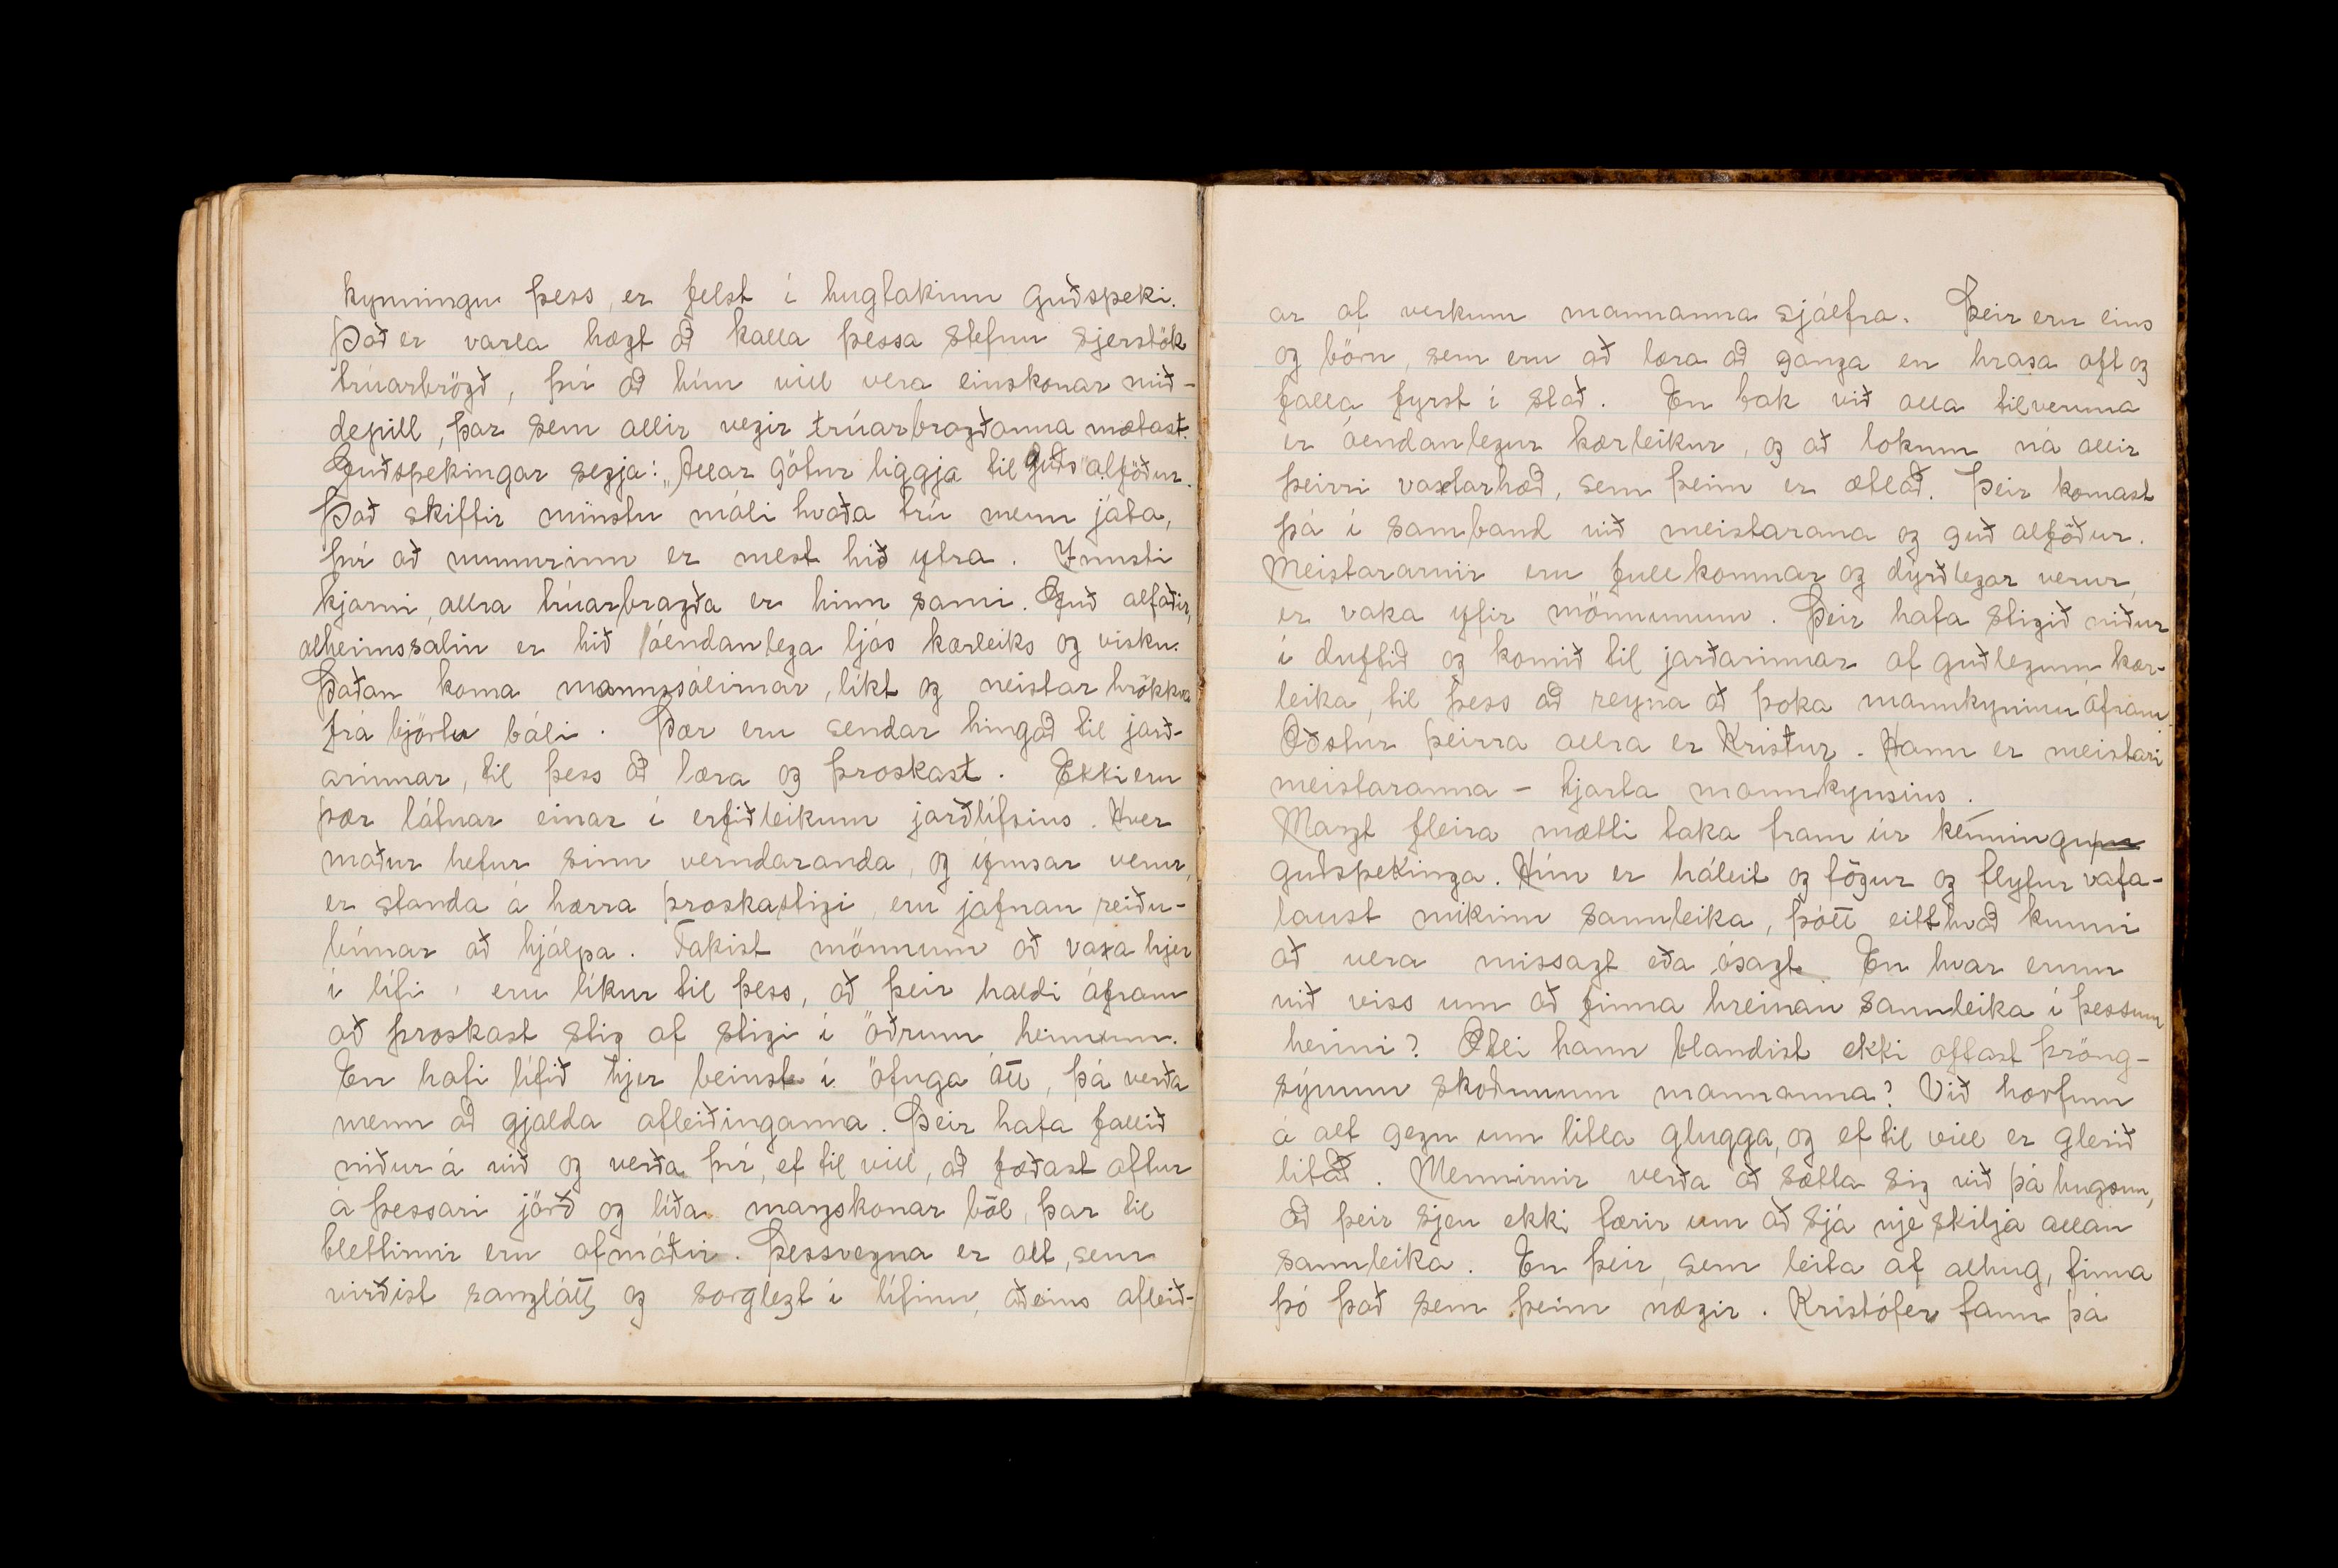 kynningu þess, er felst í hugtakinu Guðspeki.
Það er varla hægt að kalla þessa stefnu sjerstök
trúarbrögð, því að hún vill vera einskonar mið-
depill, þar sem allir vegir trúarbragðanna mætast.
Guðspekingar segja: „Allar götur liggja til guðs" alföður.
Það skiftir minstu máli hvaða trú menn játa,
því að munurinn er mest hið ytra. Innsti
kjarni allra trúarbragða er hinn sami. Guð alfaðir,
alheimssálin er hið óendanlega ljós kærleiks og visku.
Þaðan koma mannssálirnar, líkt og neistar hrökkva
frá björtu báli. Þær eru sendar hingað til jarð-
arinnar, til þess að læra og þroskast. Ekki eru
þær látnar einar í erfiðleikum jarðlífsins. Hver
maður hefur sinn verndaranda, og ýmsar verur,
er standa á hærra þroskastigi, eru jafnan reiðu-
búnar að hjálpa. Takist mönnum að vaxa hjer
í lífi, eru líkur til þess, að þeir haldi áfram
að þroskast stig af stigi í öðrum heimum.
En hafi lífið hjer beinst í öfuga átt, þá verða
menn að gjalda afleiðinganna. Þeir hafa fallið
niður á við og verða því, ef til vill, að fæðast aftur
á þessari jörð og líða margskonar böl, þar til
blettirnir eru afmáðir. Þessvegna er alt, sem
virðist ranglátt og sorglegt í lífinu, aðeins afleið-
ar af verkum mannanna sjálfra. Þeir eru eins
og börn, sem eru að læra að ganga en hrasa oft og
falla fyrst í stað. En bak við alla tilveruna
er óendanlegur kærleikur, og að lokum ná allir
þeirri vaxtarhæð, sem þeim er ætlað. Þeir komast
þá í samband við meistarana og guð alföður.
Meistararnir eru fullkomnar og dýrðlegar verur,
er vaka yfir mönnunum. Þeir hafa stigið niður
í duftið og komið til jarðarinnar af guðlegum kær-
leika, til þess að reyna að þoka mannkyninu áfram.
Æðstur þeirra allra er Kristur. Hann er meistari
meistaranna - hjarta mannkynsins.
Margt fleira mætti taka fram úr kenningu
guðspekinga. Hún er háleit og fögur og flytur vafa-
laust mikinn sannleika, þótt eitthvað kunni
að vera missagt eða ósagt. En hvar erum
við viss um að finna hreinan sannleika í þessum
heimi? Ætli hann blandist ekki oftast þröng-
sýnum skoðunum mannanna? Við horfum
á alt gegn um litla glugga, og ef til vill er glerið
litað. Mennirnir verða að sætta sig við þá hugsun,
að þeir sjeu ekki færir um að sjá nje skilja allan
sannleika. En þeir, sem leita af alhug, finna
þó það sem þeim nægir. Kristófer fann þá